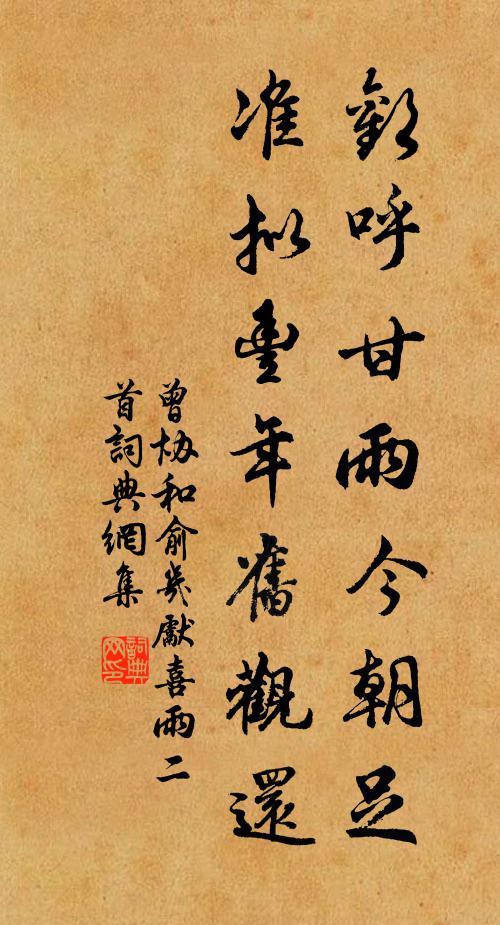 歡呼甘雨今朝足
准拟豐年舊觀還
曾协和俞幾獻喜雨二
首詞典網集
詞典
网印